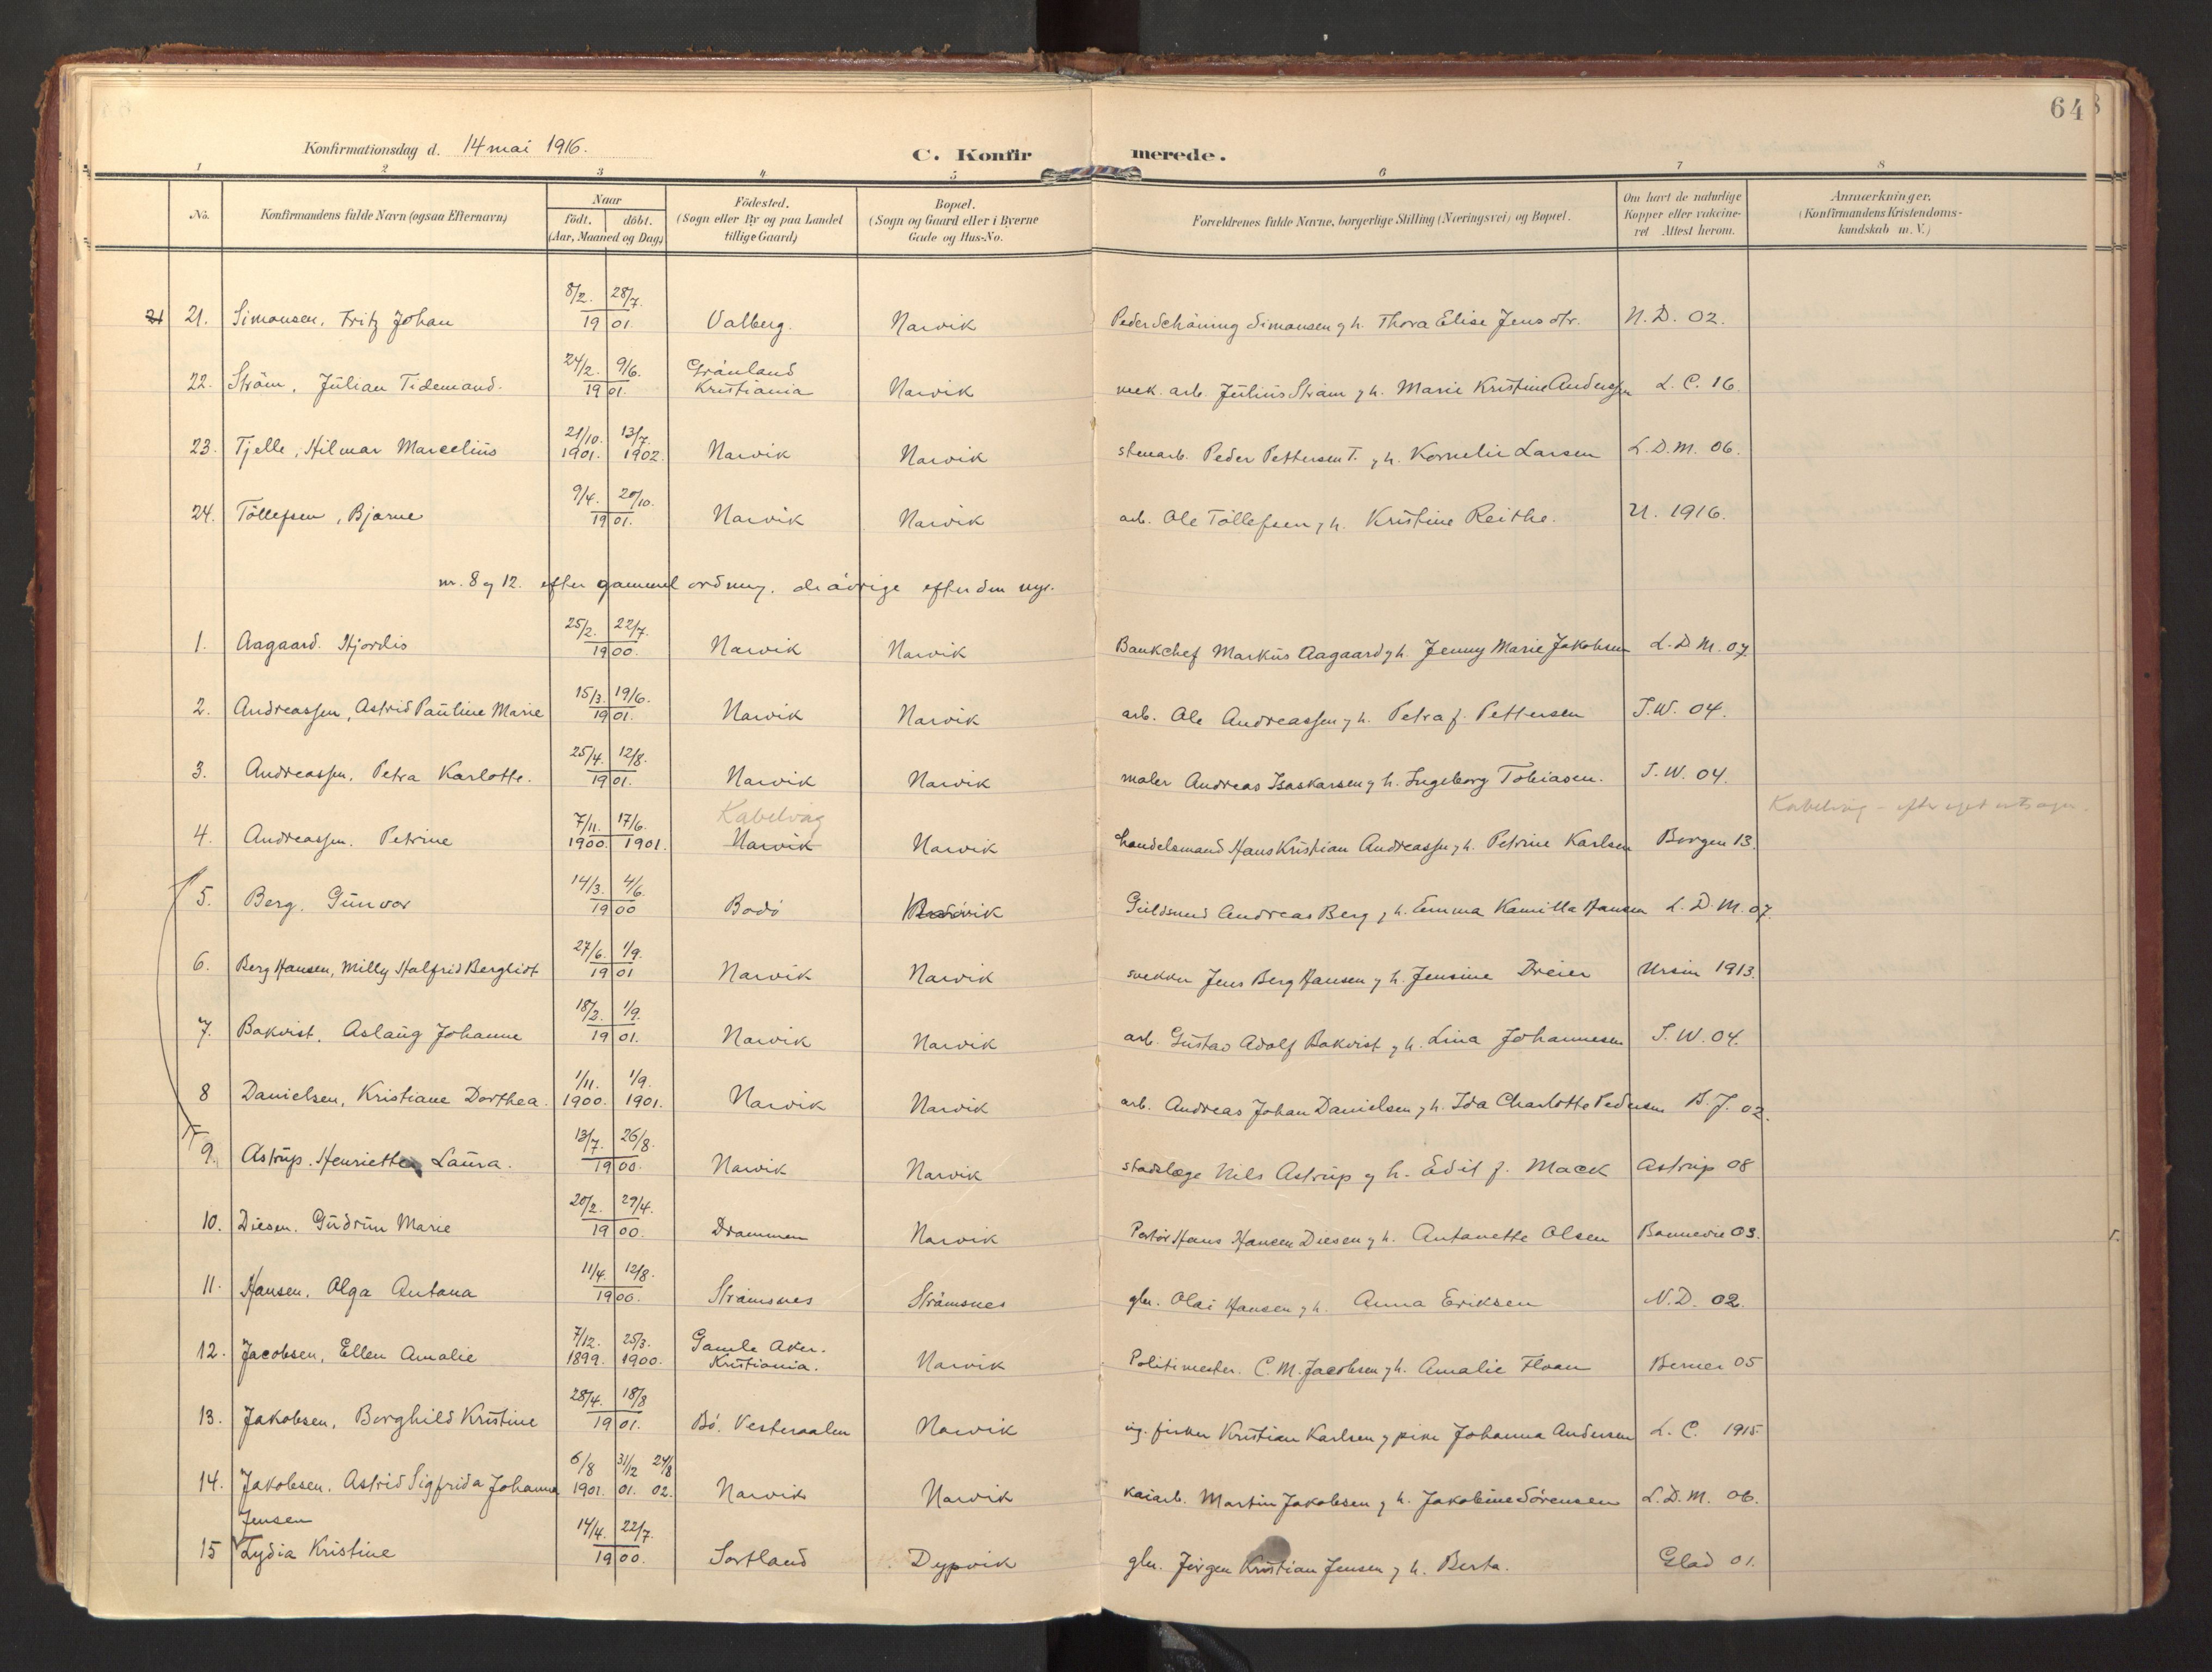 648
Konfirmationsdag d. 14 mai 1916.
C. Konfirmerede.
1 2 3 4 5 6 7 8
No. Konfirmandens fulde Navn (ogsaa Efternavn) Naar födt. döbt. (Aar, Maaned og Dag) Födested. (Sogn eller By og paa Landet tillige Gaard) Bopæl. (Sogn og Gaard eller i Byerne Gade og Hus-No. Forældrenes fulde Navne, borgerlige Stilling (Næringsvei) og Bopæl. Om havt de naturlige Kopper eller vakcineret Attest herom. Anmærkninger. (Konfirmandens Kristendomskundskab m. V.)
21 21. Simonsen, Fritz Johan 8/2. 28/7. 1901. Valberg. Narvik Peder Schöning Simonsen g h. Thora Elise Jensdtr. N.D. 02.
22. Ström, Julian Tidemand. 24/2. 9/6. 1901. Grönland Kristiania Narvik mek. arb. Julius Ström g h. Marie Kristine Anderssen L.C. 16.
23. Tjelle, Hilmar Marcelius 21/10. 1901. 13/7. 1902. Narvik Narvik stenarb. Peder Pettersen T. g h. Kornelie Larsen L.D.M. 06.
24. Töllefsen, Bjarne 9/4. 20/10. 1901. Narvik Narvik arb. Ole Tollefsen g h. Kristine Reithe. U. 1916.
nr. 8 og 12. efter gammel ordning, de övrige efter den nye.
1. Aagaard. Hjordis 25/2. 22/7. 1900. Narvik Narvik Bankchef Markus Aagaard g h. Jenny Marie Jakobsen L.D.M. 07.
2. Andreassen, Astrid Pauline Marie 15/3. 19/6. 1901. Narvik Narvik arb. Ole Andreassen g h. Petra f. Pettersen J.W. 04.
3. Andreassen, Petra Karlotte. 25/4. 12/8. 1901. Narvik Narvik maler Andreas Isaskarsen g h. Ingeborg Tobiasen. J.W. 04.
4. Andreassen. Petrine 7/11. 1900. 17/6. 1901. Kabelvåg Narvik Narvik handelsmand Hans Kristian Andreassen g h. Petrine Karlsen Borgen 13. Kabelvåg - efter eget
5. Berg. Gunvor 14/3. 4/6. 1900 Bodö Narvik Guldsmed Andreas Berg g h. Emma Kamilla Hansen L.D.M. 07.
6. Berg Hansen, Milly Halfrid Bergliot 27/6. 1/9. 1901 Narvik Narvik snekker Jens Berg Hansen g h. Jensine Dreier Ursin 1913.
7. Bokvist. Aslaug Johanne 18/3. 1/9. 1901. Narvik Narvik arb. Gustav Adolf Bokvist g h. Lina Johannesen J.W. 04.
8 Danielsen, Kristiane Dorthea. 1/11. 1900. 1/9. 1901. Narvik Narvik arb. Andreas Johan Danielsen g h. Ida Charlotte Pedersen B.J. 02.
9. Astrup. Henriette Laura. 13/7. 26/8. 1900. Narvik Narvik stadslæge Nils Astrup g h. Edit f. Mack Astrup 08
10. Diesen. Gudrun Marie 20/2. 29/4. 1900. Drammen Narvik Portör Hans Hansen Diesen g h. Antonette Olsen Bonnevie 03.
11. Hansen, Olga Antona 11/4. 12/8. 1900. Strömsnes Strömsnes gbr. Olai Hansen g h. Anna Eriksen N.D. 02.
12. Jacobsen, Ellen Amalie 7/12. 1899. 25/3. 1900. Gamle Aker. Kristiania. Narvik Politimester. C.M. Jacobsen g h. Amalie Floan Berner 05
13. Jakobsen, Borghild Kristine 28/4. 18/8 1901. Bö. Vesteraalen Narvik ug. fisker Kristian Karlsen g pike Johanna Andersen L.C. 1915
14. Jakobsen. Astrid Sigfrida Johanna 6/8 1901. 31/2 01. 24/8 02. Narvik Narvik kaiarb. Martin Jakobsen g h. Jakobine Sörensen L.D.M. 06.
15 Jensen Lydia Kristine 14/4. 22/7. 1900. Sortland Dypvik gbr. Jörgen Kristian Jensen g h. Berta. Glad 01.